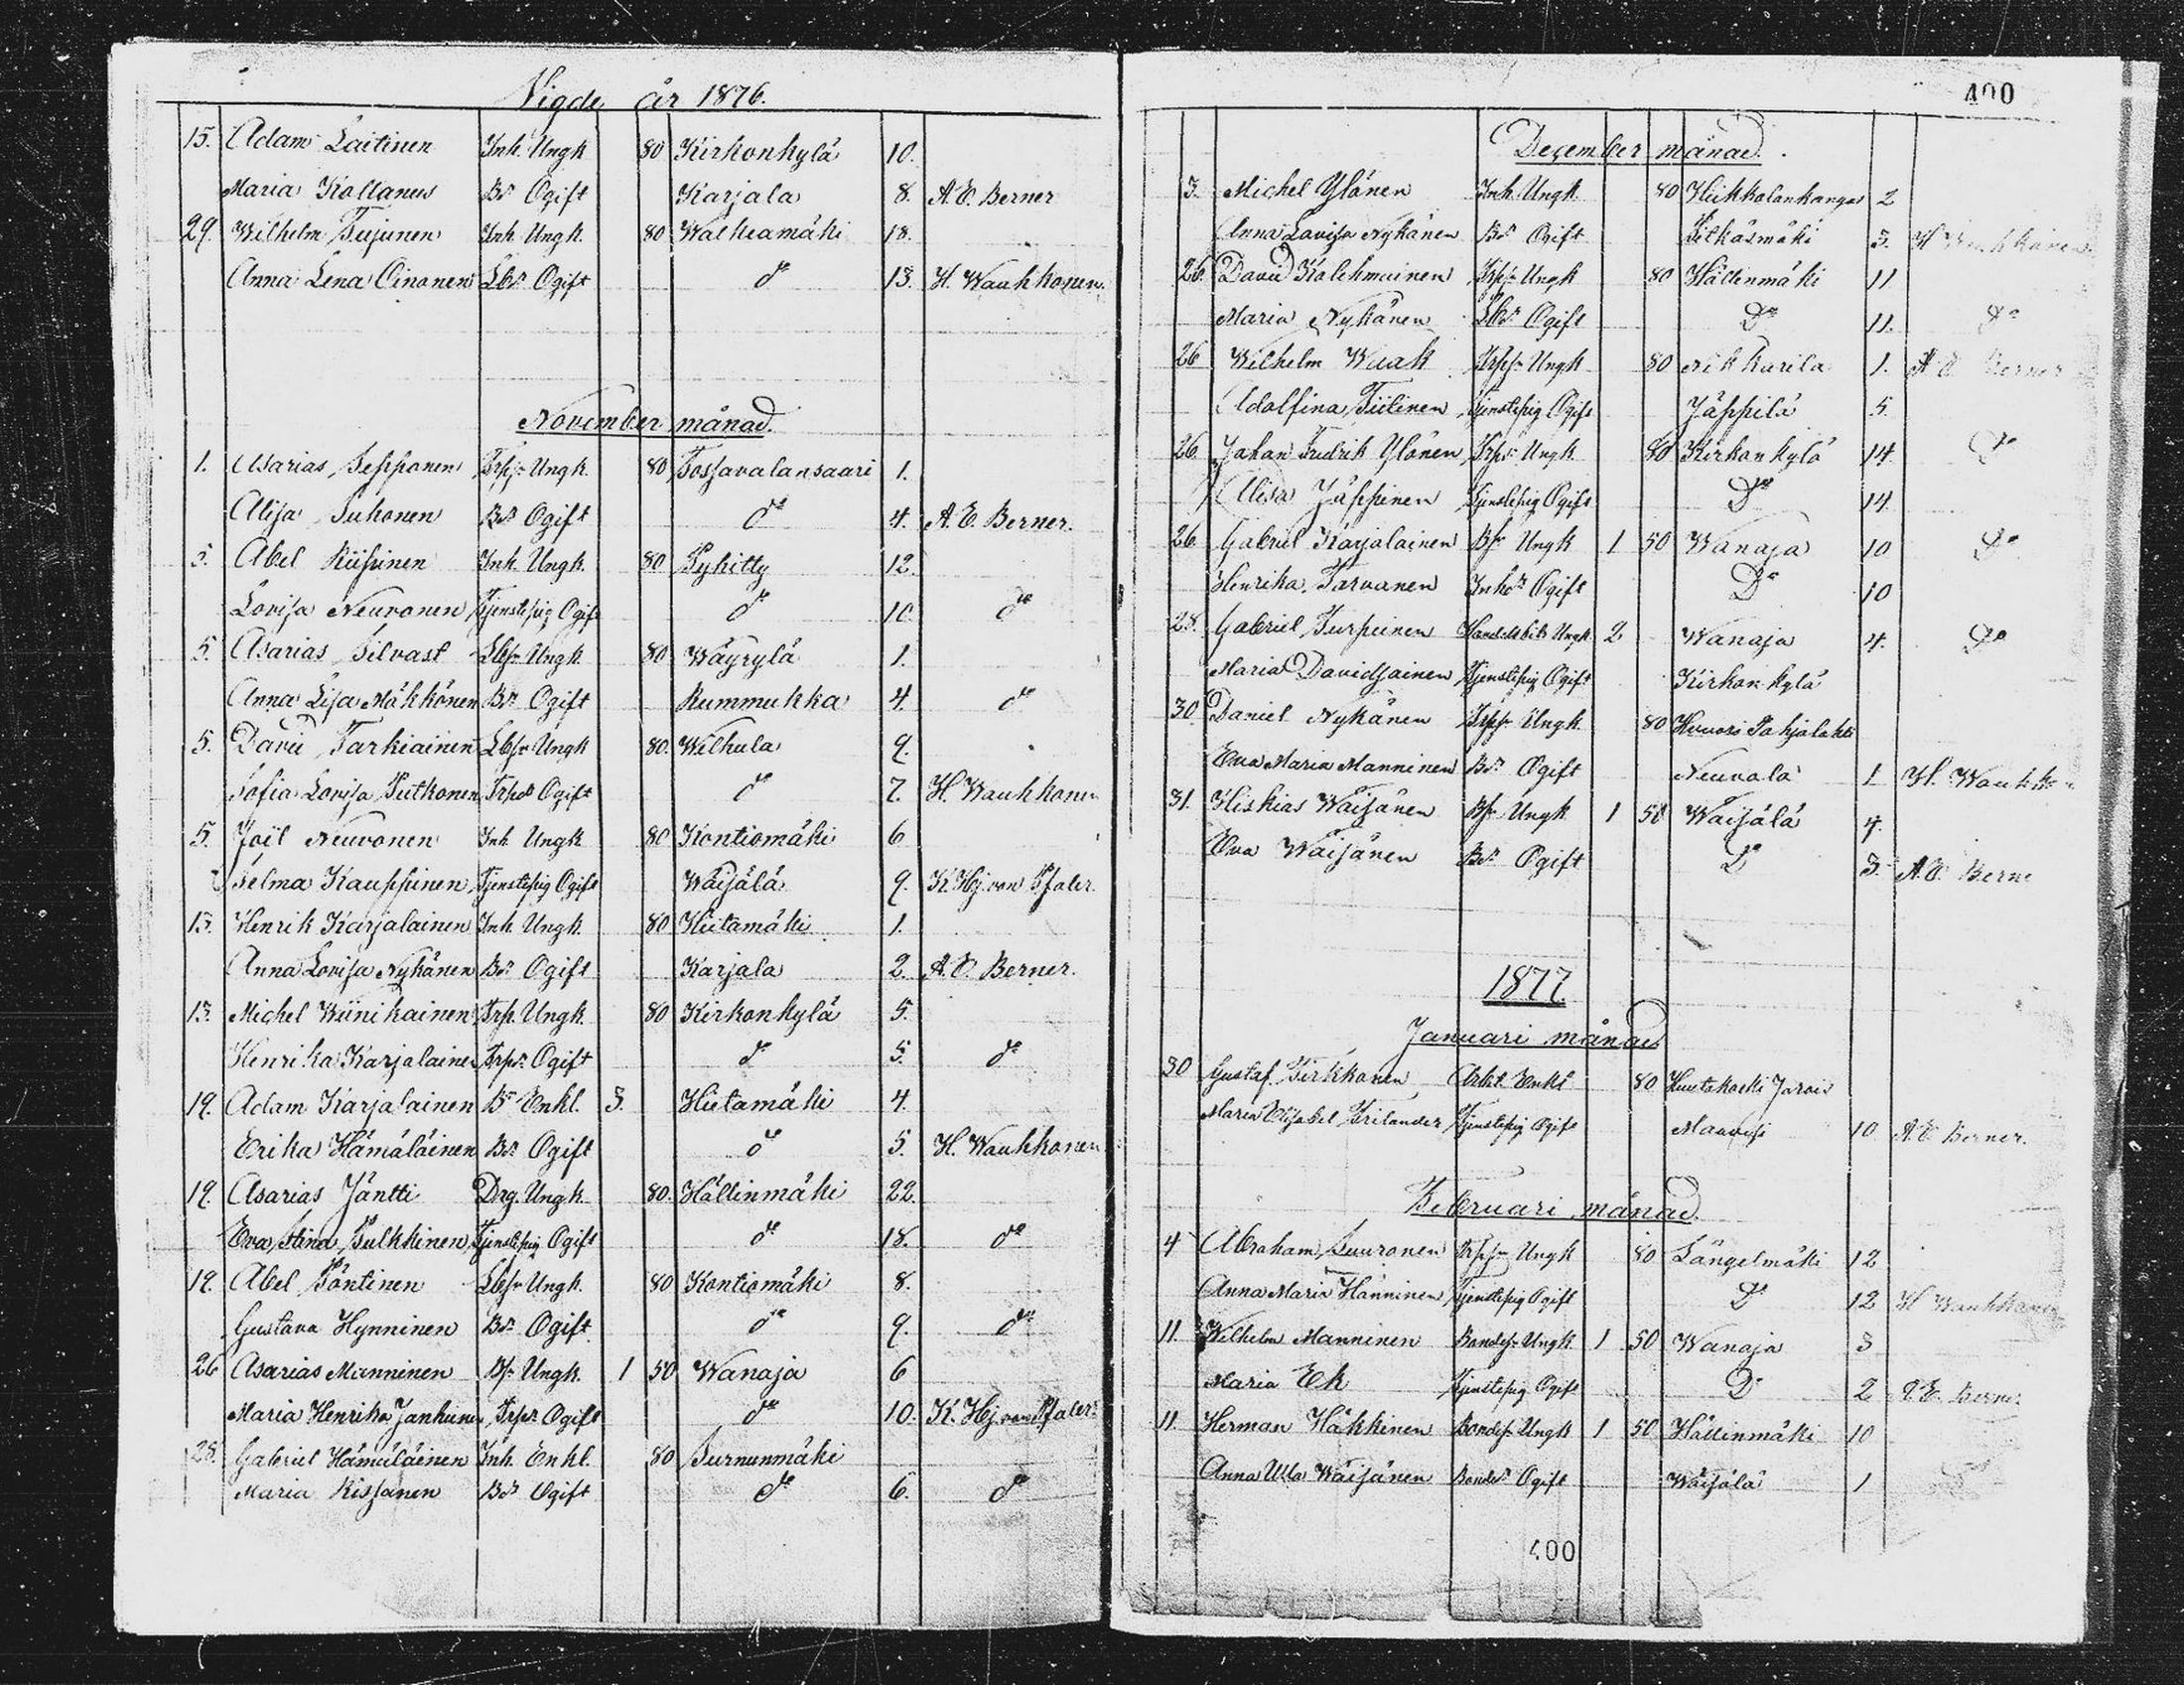 Vigde år 1876.
15. Adam Laitinen Inh. Ungk 80 Kirkonkylä 10.
Maria Kollanus Bdr Ogift Karjala 8. A. E. Berner
29. Wilhelm Tujunen Inh. Ungk. 80 Walkiamäki 18.
Anna Lena Oinonen Lbdr Ogift do 13. H. Wauhkonen.
November månad.
1. Asarias Sepponen Trpsr Ungk. 80 Tossavalansaari 1.
Alisa Suhonen Bdr Ogift do 4. A. E. Berner.
5. Abel Riipinen Inh. Ungk. 80 Pyhitty 12.
Lovisa Neuvonen Tjenstepig Ogift do 10. do
5. Asarias Silvast Lbsr Ungk. 80 Wäyrylä 1.
Anna Lisa Mähkönen Bdr Ogift Rummukka 4. do
5. David Tarkiainen Lbsr Ungk 80. Wilhula 9.
Sofia Lovisa Putkonen Trpdr Ogift do 7. H. Wauhkonen
5. Joil Neuvonen Inh. Ungk 80 Kontiomäki 6
Selma Kauppinen Tjenstepig Ogift Waijälä 9. K. Hj. von Pfaler.
13. Henrik Karjalainen Inh. Ungk. 80 Hiitamäki 1.
Anna Lovisa Nykänen Bdr Ogift Karjala 2. A. E. Berner.
13. Michel Wiinikainen Trp. Ungk. 80 Kirkonkylä 5.
Henrika Karjalainen Trpdr Ogift do 5. do
19. Adam Karjalainen Br Enkl. 3. Hiitamäki 4.
Erika Hämäläinen Bdr Ogift do 5. H. Wauhkonen
19. Asarias Jäntti Drg. Ungk. 80. Hällinmäki 22.
Eva Stina Pulkkinen Tjenstepig Ogift do 18. do
19. Abel Pöntinen Lbsr Ungk. 80 Kontiomäki 8.
Gustava Hynninen Bdr Ogift do 9. do
26 Asarias Manninen Bsr Ungk. 1 50 Wanaja 6
Maria Henrika Janhunen Trpdr Ogift do 10. K. Hj. von Pfaler.
28. Gabriel Hämäläinen Inh. Enkl. 80 Surnunmäki
Maria Kissanen Bdr Ogift do 6. do
400
December månad.
3. Michel Ylönen Inh. Ungk. 80 Hiikkalankangas 2
Anna Lovisa Nykänen Bdr Ogift Pitkäsmäki 3. H Wauhkonen
26. David Kolehmainen Trpsr Ungk 80 Hällinmäki 11
Maria Nykänen Lbdr Ogift Do 11. Do
26 Wilhelm Wuak Trpsr Ungk 80 Nikkarila 1. A E Berner
Adolfina Tiitinen Tjenstepig Ogift Jäppilä 5.
26. Johan Fredrik Ylönen Trpsr Ungk 80 Kirkonkylä 14. Do
Alisa Jäppinen Tjenstepig Ogift Do 14
26 Gabriel Karjalainen Bsr Ungk 1 50 Wanaja 10 Do
Henrika Tarvanen Inhdr Ogift Do 10
28. Gabriel Turpeinen Handelsbit. Ungk 2 Wanaja 4. Do
Maria Davidsainen Tjenstepig Ogift Kirkonkylä
30. Daniel Nykänen Trpsr Ungk. 80 Pohjalahti
Eva Maria Manninen Bdr Ogift Neuvola 1 H. Wauhko
31. Hiskias Waisänen Bsr Ungk 1 50 Waisälä 4.
Eva Waisänen Bdr Ogift Do 3. A. E. Berne
1877.
Januari månad
30 Gustaf Pirkkonen Arbt. Enkl 80 Jorois
Maria Elisabet Frilander Tjenstepig Ogift Maavesi 10 A. E. Berner.
Februari månad.
4 Abraham Suuronen Trpsr Ungk 80 Längelmäki 12
Anna Maria Hänninen Tjenstepig Ogift Do 12 H Wauhkonen
11. Wilhelm Manninen Bondesr Ungk 1 50 Wanaja 3
Maria Ek Tjenstepig Ogift Do 2 A E. Berner
11. Herman Häkkinen Bondesr Ungk 1 50 Hällinmäki 10
Anna Ulla Waisänen Bondedr Ogift Waisälä 1
400